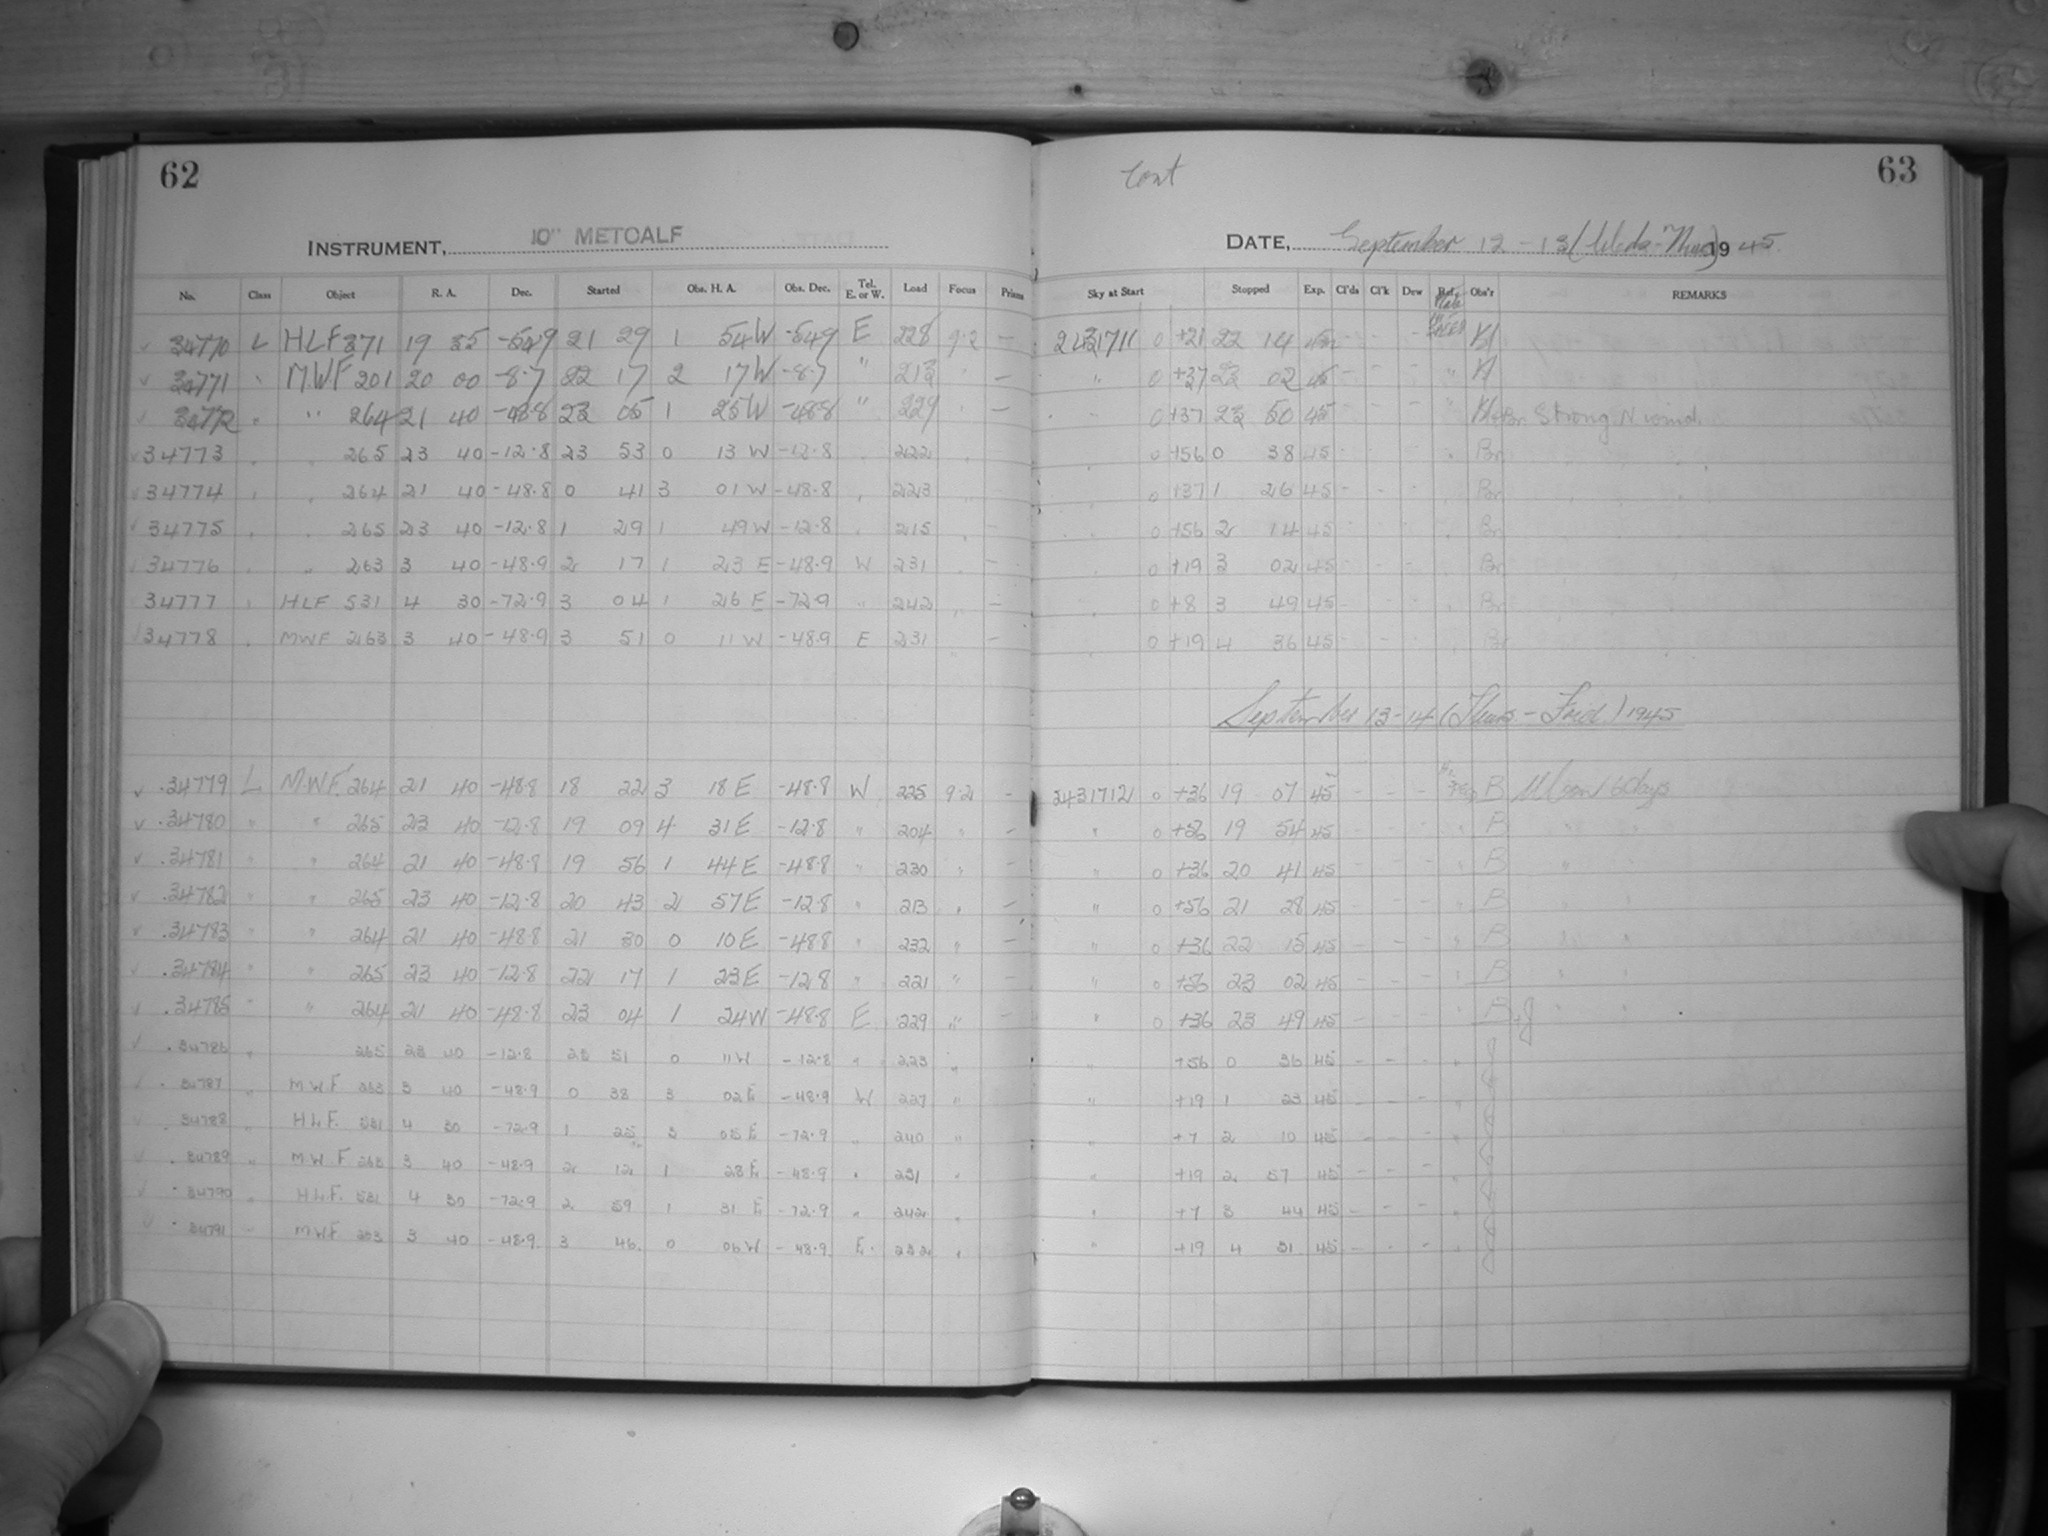 62
INSTRUMENT, 10" METCALF
No. Class Object R. A. Dec. Started Obs. H. A. Obs. Dec. Tel. E. or W. Load Focus Prism
34770 L HLF 371 19 35 -54.9 21 29 1 54 W -54.9 E 228 9.2 -
34771 " MWF 201 20 00 -8.7 22 17 2 17 W -8.7 " 213 -
34772 " " 264 21 40 -48.8 23 05 1 25 W -48.8 " 229 -
34773 " " 265 23 40 -12.8 23 53 0 13 W -12.8 " 222
34774 " " 264 21 40 -48.8 0 41 3 01 W -48.8 " 223
34775 " " 265 23 40 -12.8 1 29 1 49 W -12.8 " 215 -
34776 " " 263 3 40 -48.9 2 17 1 23 E -48.9 W 231 -
34777 " HLF 531 4 30 -72.9 3 04 1 26 E -72.9 " 242 -
34778 " MWF 263 3 40 -48.9 3 51 0 11 W -48.9 E 231 -
34779 L MWF 264 21 40 -48.8 18 22 3 18 E -48.8 W 225 9.2 -
34780 " " 265 23 40 -12.8 19 09 4 31 E -12.8 " 204 " -
34781 " " 264 21 40 -48.8 19 56 1 44 E -48.8 " 230 " -
34782 " " 265 23 40 -12.8 20 43 2 57 E -12.8 " 213 " -
34783 " " 264 21 40 -48.8 21 30 0 10 E -48.8 " 232 " -
34784 " " 265 23 40 -12.8 22 17 1 23 E -12.8 " 221 " -
34785 " " 264 21 40 -48.8 23 04 1 24 W -48.8 E 229 " -
34786 " 265 23 40 -12.8 23 51 0 11 W -12.8 " 223
34787 " MWF 263 3 40 -48.9 0 38 3 02 E -48.9 W 227 "
34788 " HLF. 531 4 30 -72.9 1 25 3 05 E -72.9 " 240 "
34789 " MWF 263 3 40 -48.9 2 12 1 28 E -48.9 " 231 "
34790 " HLF. 531 4 30 -72.9 2 59 1 31 E -72.9 " 242 "
34791 " MWF 263 3 40 -48.9 3 46 0 06 W -48.9 E. 232 "
Cont
63
DATE, September 12-13 (Weds-Thurs) 1945.
Sky at Start Stopped Exp. Cl'ds Cl'k Dew Ref. Obs'r REMARKS
0 +21 22 14 - - -
" 0 +37 23 02 45 - - - "
" 0 +37 23 50 45 - - - " Strong N wind.
" 0 +56 0 38 45 Br " " "
" 0 +37 1 26 45 - - - Br " " "
" 0 +56 2 14 45 Br
" 0 +19 3 02 45 - - Br
" 0 +8 3 49 45 Br
" 0 +19 4 36 45 Br
September 13-14 (Thurs-Frid) 1945
34317121 0 +36 19 07 45 - - - B Moon 6 days
" 0 +56 19 54 45 - - - " B " "
" 0 +36 20 41 45 - - - " B "
" 0 +56 21 28 45 - - - " B " "
" 0 +36 22 15 45 - - - " B " "
" 0 +56 23 02 45 - - - " B " "
" 0 +36 23 49 45 - - - " B+J " "
" +56 0 36 45 - - - " J
" +19 1 23 45 - - - " J
" +7 2 10 45 - - - " J
" +19 2 57 45 - - - " J
" +7 3 44 45 - - - " J
" +19 4 31 45 - - - " J